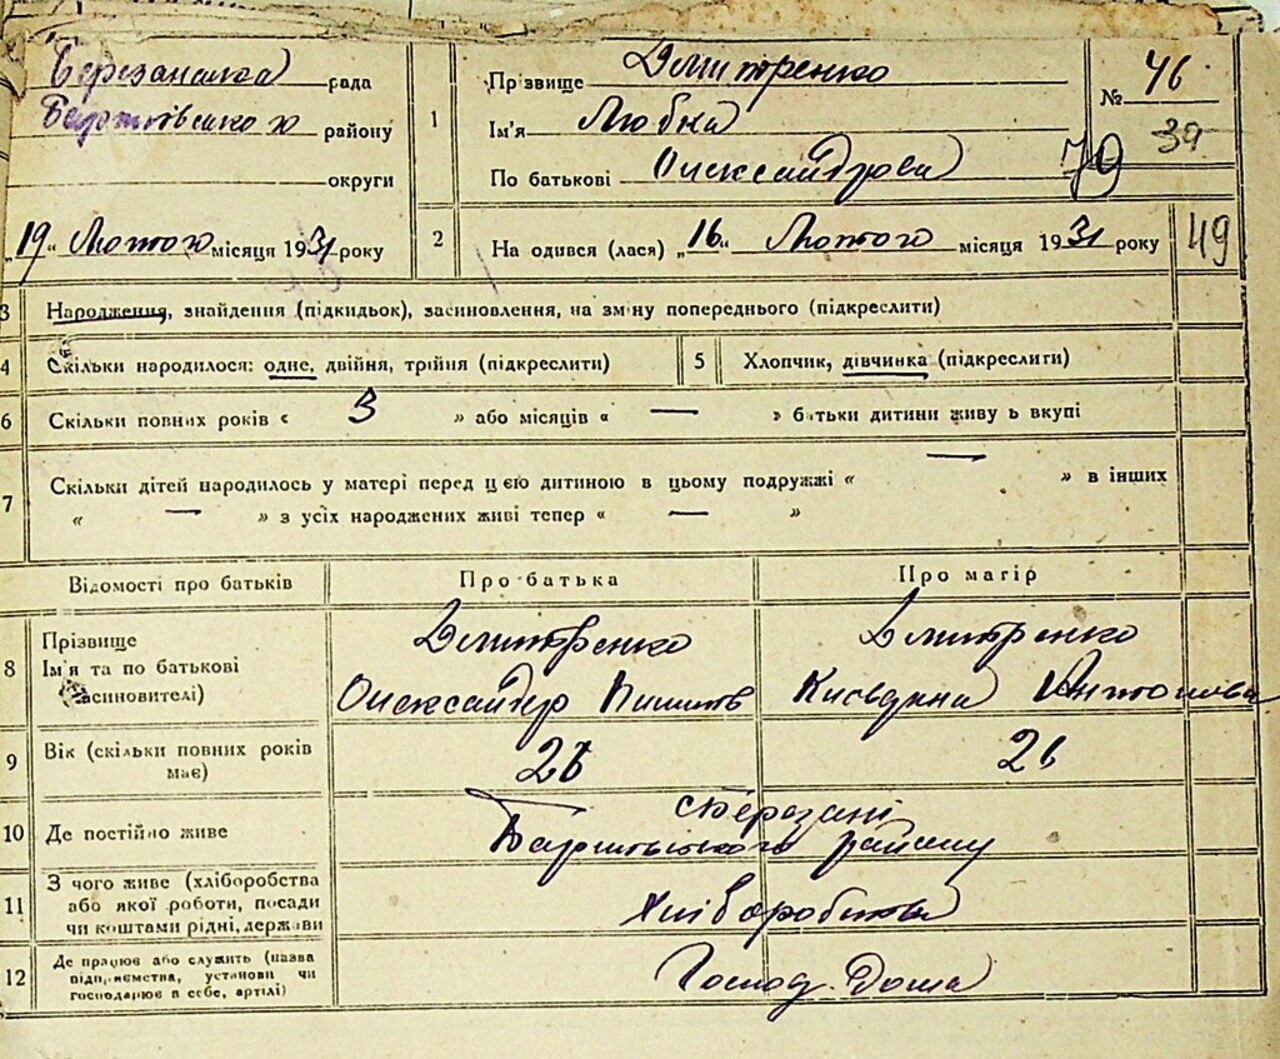 рада
району
округи
„19“ Лютого місяця 1931 року
1
Прізвище Дмитренко
Ім'я Любка
По батькові Олександрова
№ 46
39
79
2
На одився (лася) „16“ Лютого місяця 1931 року
49
3
Народження, знайдення (підкидьок), засиновлення, на зміну попереднього (підкреслити)
4
Скільки народилося: одне, двійня, трійня (підкреслити)
5
Хлопчик, дівчинка (підкреслити)
6
Скільки повних років « 3 » або місяців « — » батьки дитини живу ь вкупі
7
Скільки дітей народилось у матері перед цією дитиною в цьому подружжі « — » в інших
« — » з усіх народжених живі тепер « — »
Відомості про батьків
Про батька
Про матір
8
Прізвище
Ім'я та по батькові
(засиновителі)
Дмитренко
Олександер
Дмитренко
Антонова
9
Вік (скільки повних років
має)
26
26
10
Де постійно живе
с Березані
району
11
З чого живе (хліборобства
або якої роботи, посади
чи коштами рідні, держави
Хліборобства
12
Де працює або служить (назва
підприємства, установи чи
господарює в себе, артілі)
Господ. Дома